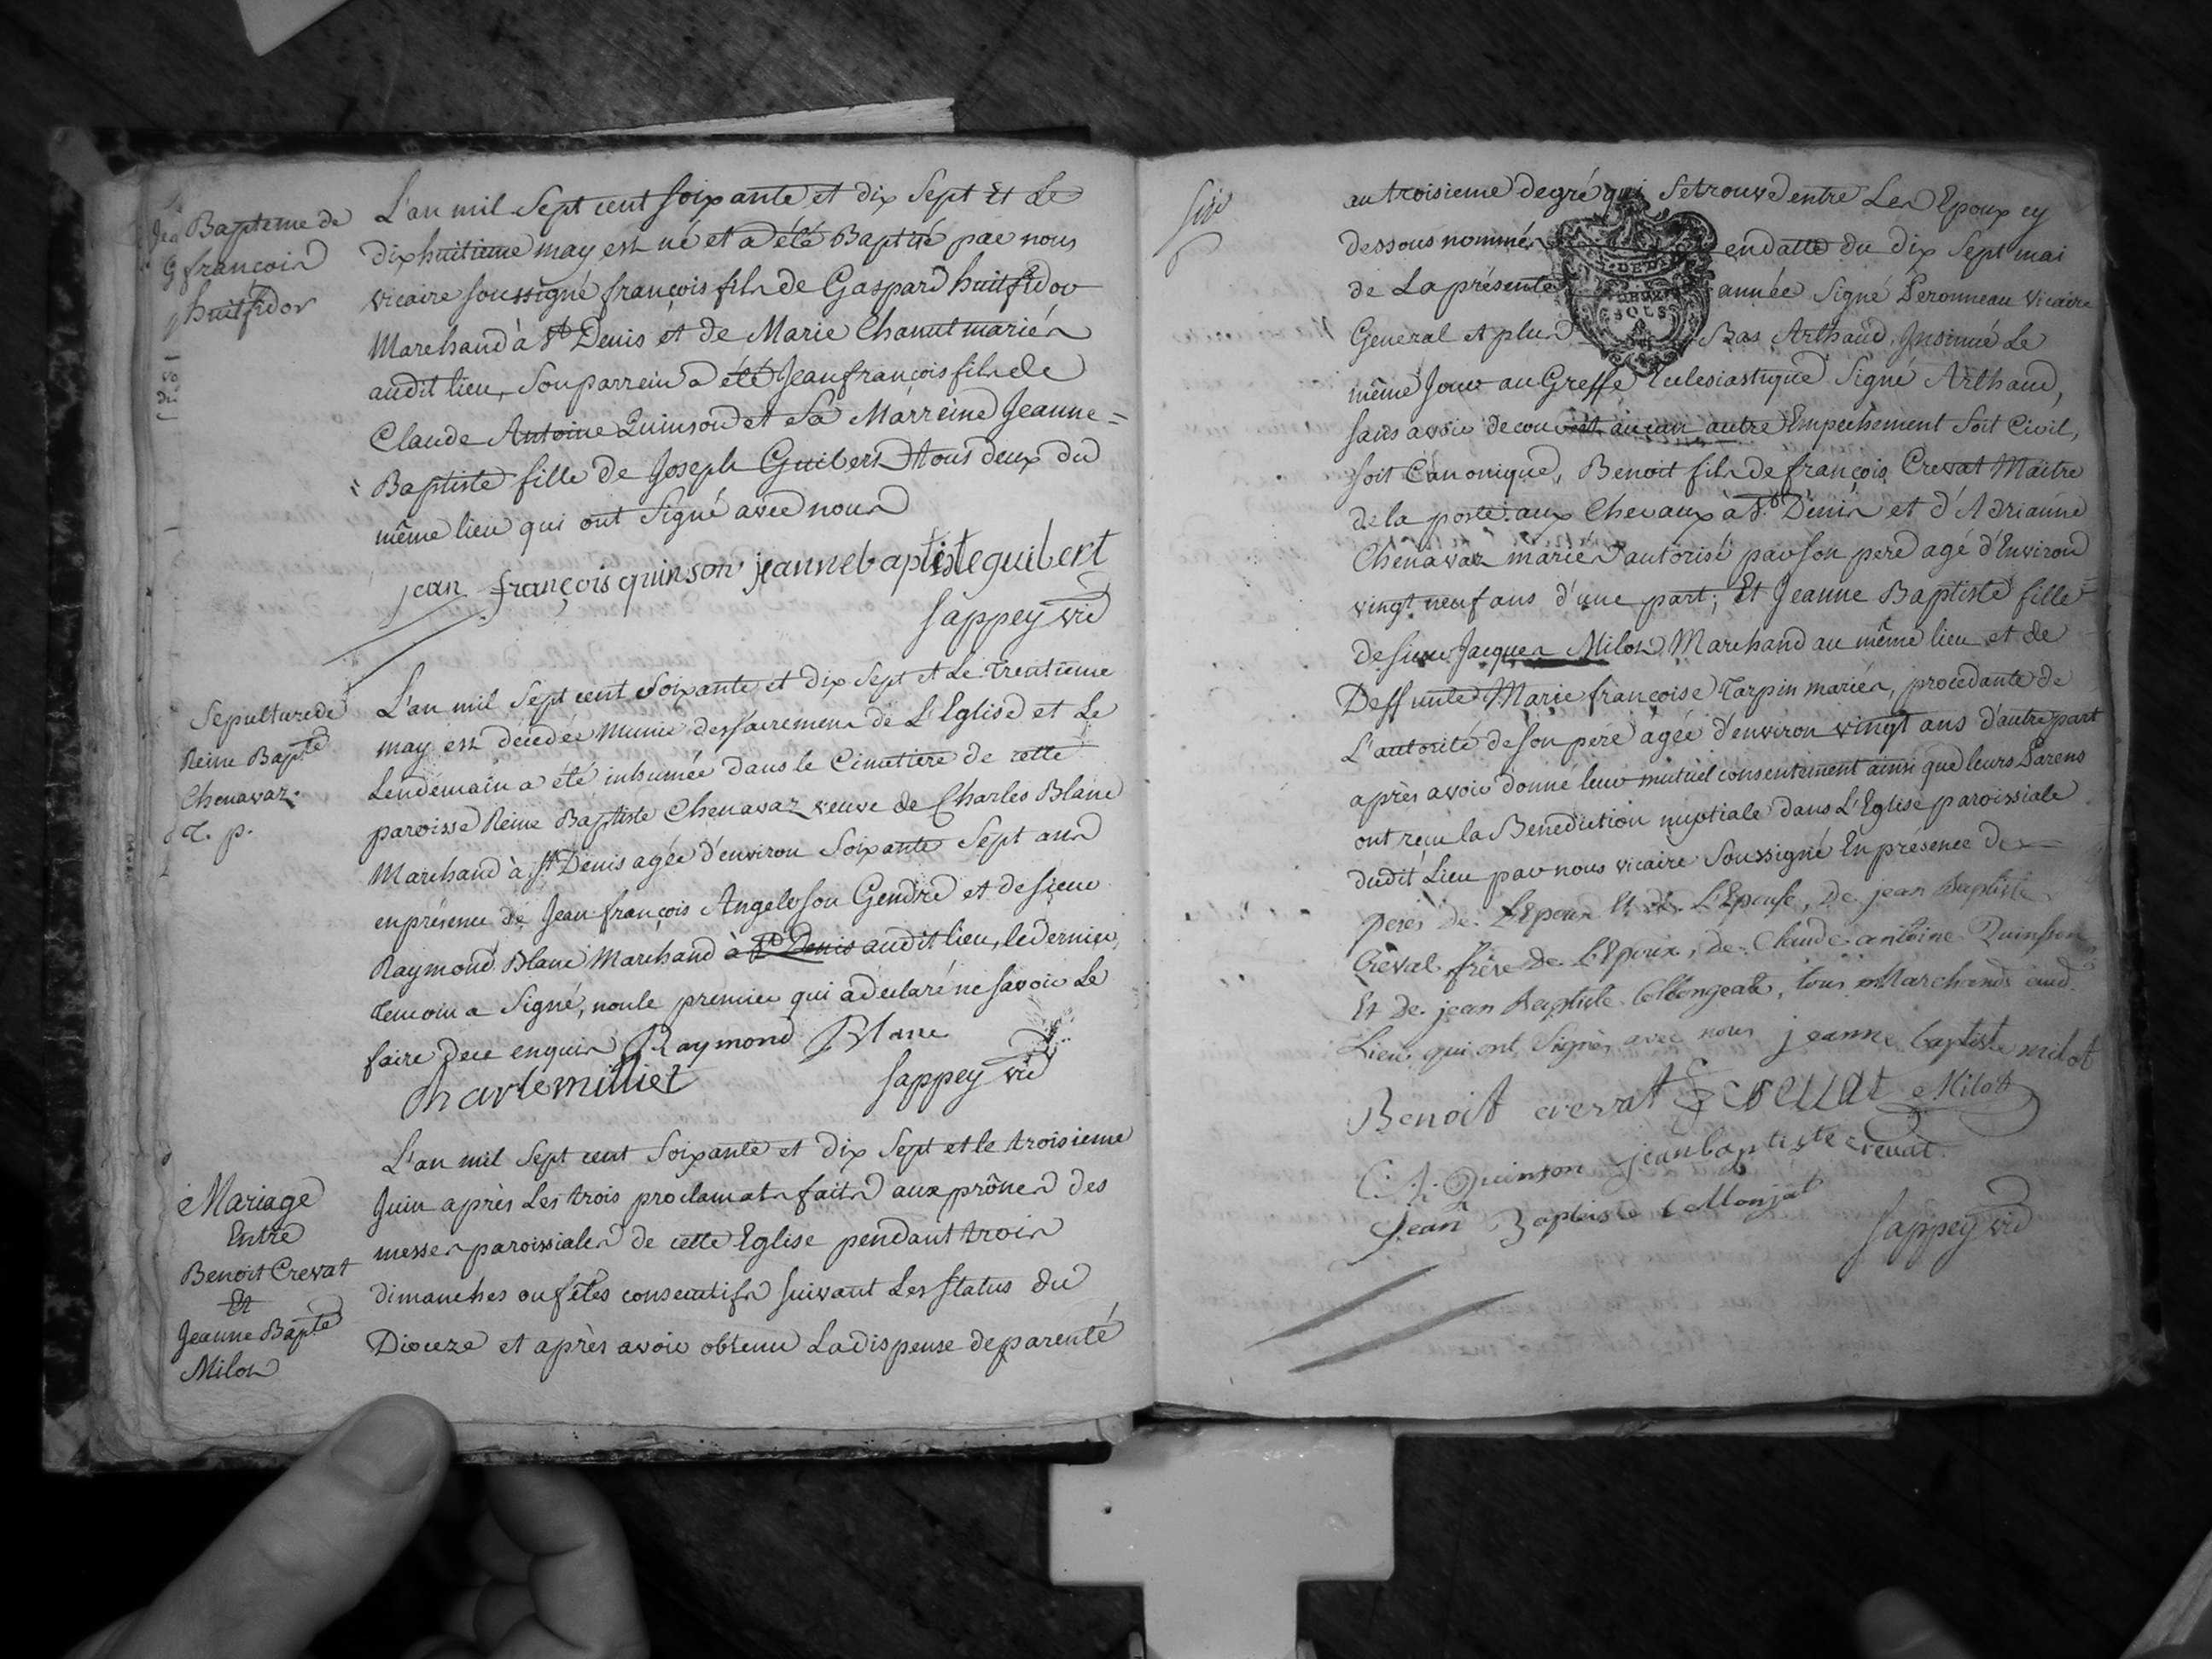 Bapteme de
françois
huitfidor
L'an mil Sept cent soixante et dix Sept Et Le
dixhuitieme may est né et a été Baptisé par nous
vicaire soussigné françois fils de Gaspard huitfidor
Marchand à St Denis et de Marie Chanut mariés
audit lieu, Son parrein a été Jean françois fils de
Claude Antoine Quinson et Sa Marreine Jeanne=
Baptiste fille de Joseph Guibert tous deux du
même lieu qui ont Signé avec nous
jean françois quinson jeanne baptiste guibert
Sappey vic
Sepulture de
Reine Bapte
Chenavaz.
T. p.
L'an mil Sept cent Soixante et dix Sept et Le trentieme
may est décédée munie des sacremens de L'Eglise et Le
Lendemain a été inhumée dans le Cimetiere de cette
paroisse Reine Baptiste Chenavaz veuve de Charles Blanc
Marchand à St Denis agée d'environ Soixante Sept ans
en présence de Jean françois Angelo son Gendre et de sieur
Raymond Blanc Marchand à St Denis audit lieu, le dernier
Temoin a Signé, non le premier qui a declaré ne savoir Le
faire de ce enquis Raymond Blanc
Sappey vic
Mariage
Entre
Benoit Crevat
Et
Jeanne Bapte
Milot
L'an mil Sept cent Soixante et dix Sept et le troisieme
Juin après Les trois proclamats faits aux prônes des
messes paroissiales de cette Eglise pendant trois
dimanches ou fêtes consecutifs suivant Les status du
Dioceze et après avoir obtenu La dispense de parenté
Six
au troisieme degré qui Se trouve entre Les Epoux cy
dessous nommés en datte du dix Sept mai
de La présente année Signé Peronneau Vicaire
General et plus Bas Arthaud, Insinué Le
même Jour au Greffe Ecclesiastique Signé Arthaud,
sans avoir decouvert aucun autre Empechement Soit Civil,
soit Canonique, Benoit fils de françois Crevat Maitre
de la poste aux Chevaux à St Denis et d'Adrianne
Chenavaz mariés autorisé par son pere agé d'Environ
vingt neuf ans d'une part; Et Jeanne Baptiste fille
de sieur Jacques Milot Marchand au même lieu et de
Deffunte Marie françoise Tarpin mariés, procedante de
L'autorité de son pere agée d'environ vingt ans d'autre part
après avoir donné leur mutuel consentement ainsi que leurs Parens
ont reçu la Benediction nuptiale dans L'Eglise paroissiale
dudit Lieu par nous vicaire Soussigné En presence des
peres de L'Epoux Et de L'Epouse, de jean Baptiste
Crevat frère de L'Epoux, de Claude antoine Quinson
Et de jean Baptiste Collongeat, tous Marchands aud.
Lieu qui ont Signés avec nous jeanne baptiste milot
Benoit crevat F Crevat Milot
C. A. Quinson jean baptiste crevat
Jean Baptiste Collonjat
Sappey vic